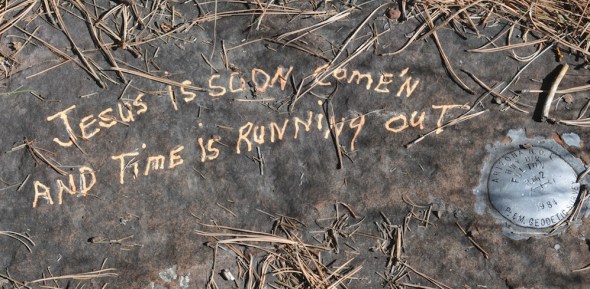 JESUS IS SOON COME'N
AND TiME is RUNNiNg OUT
1984